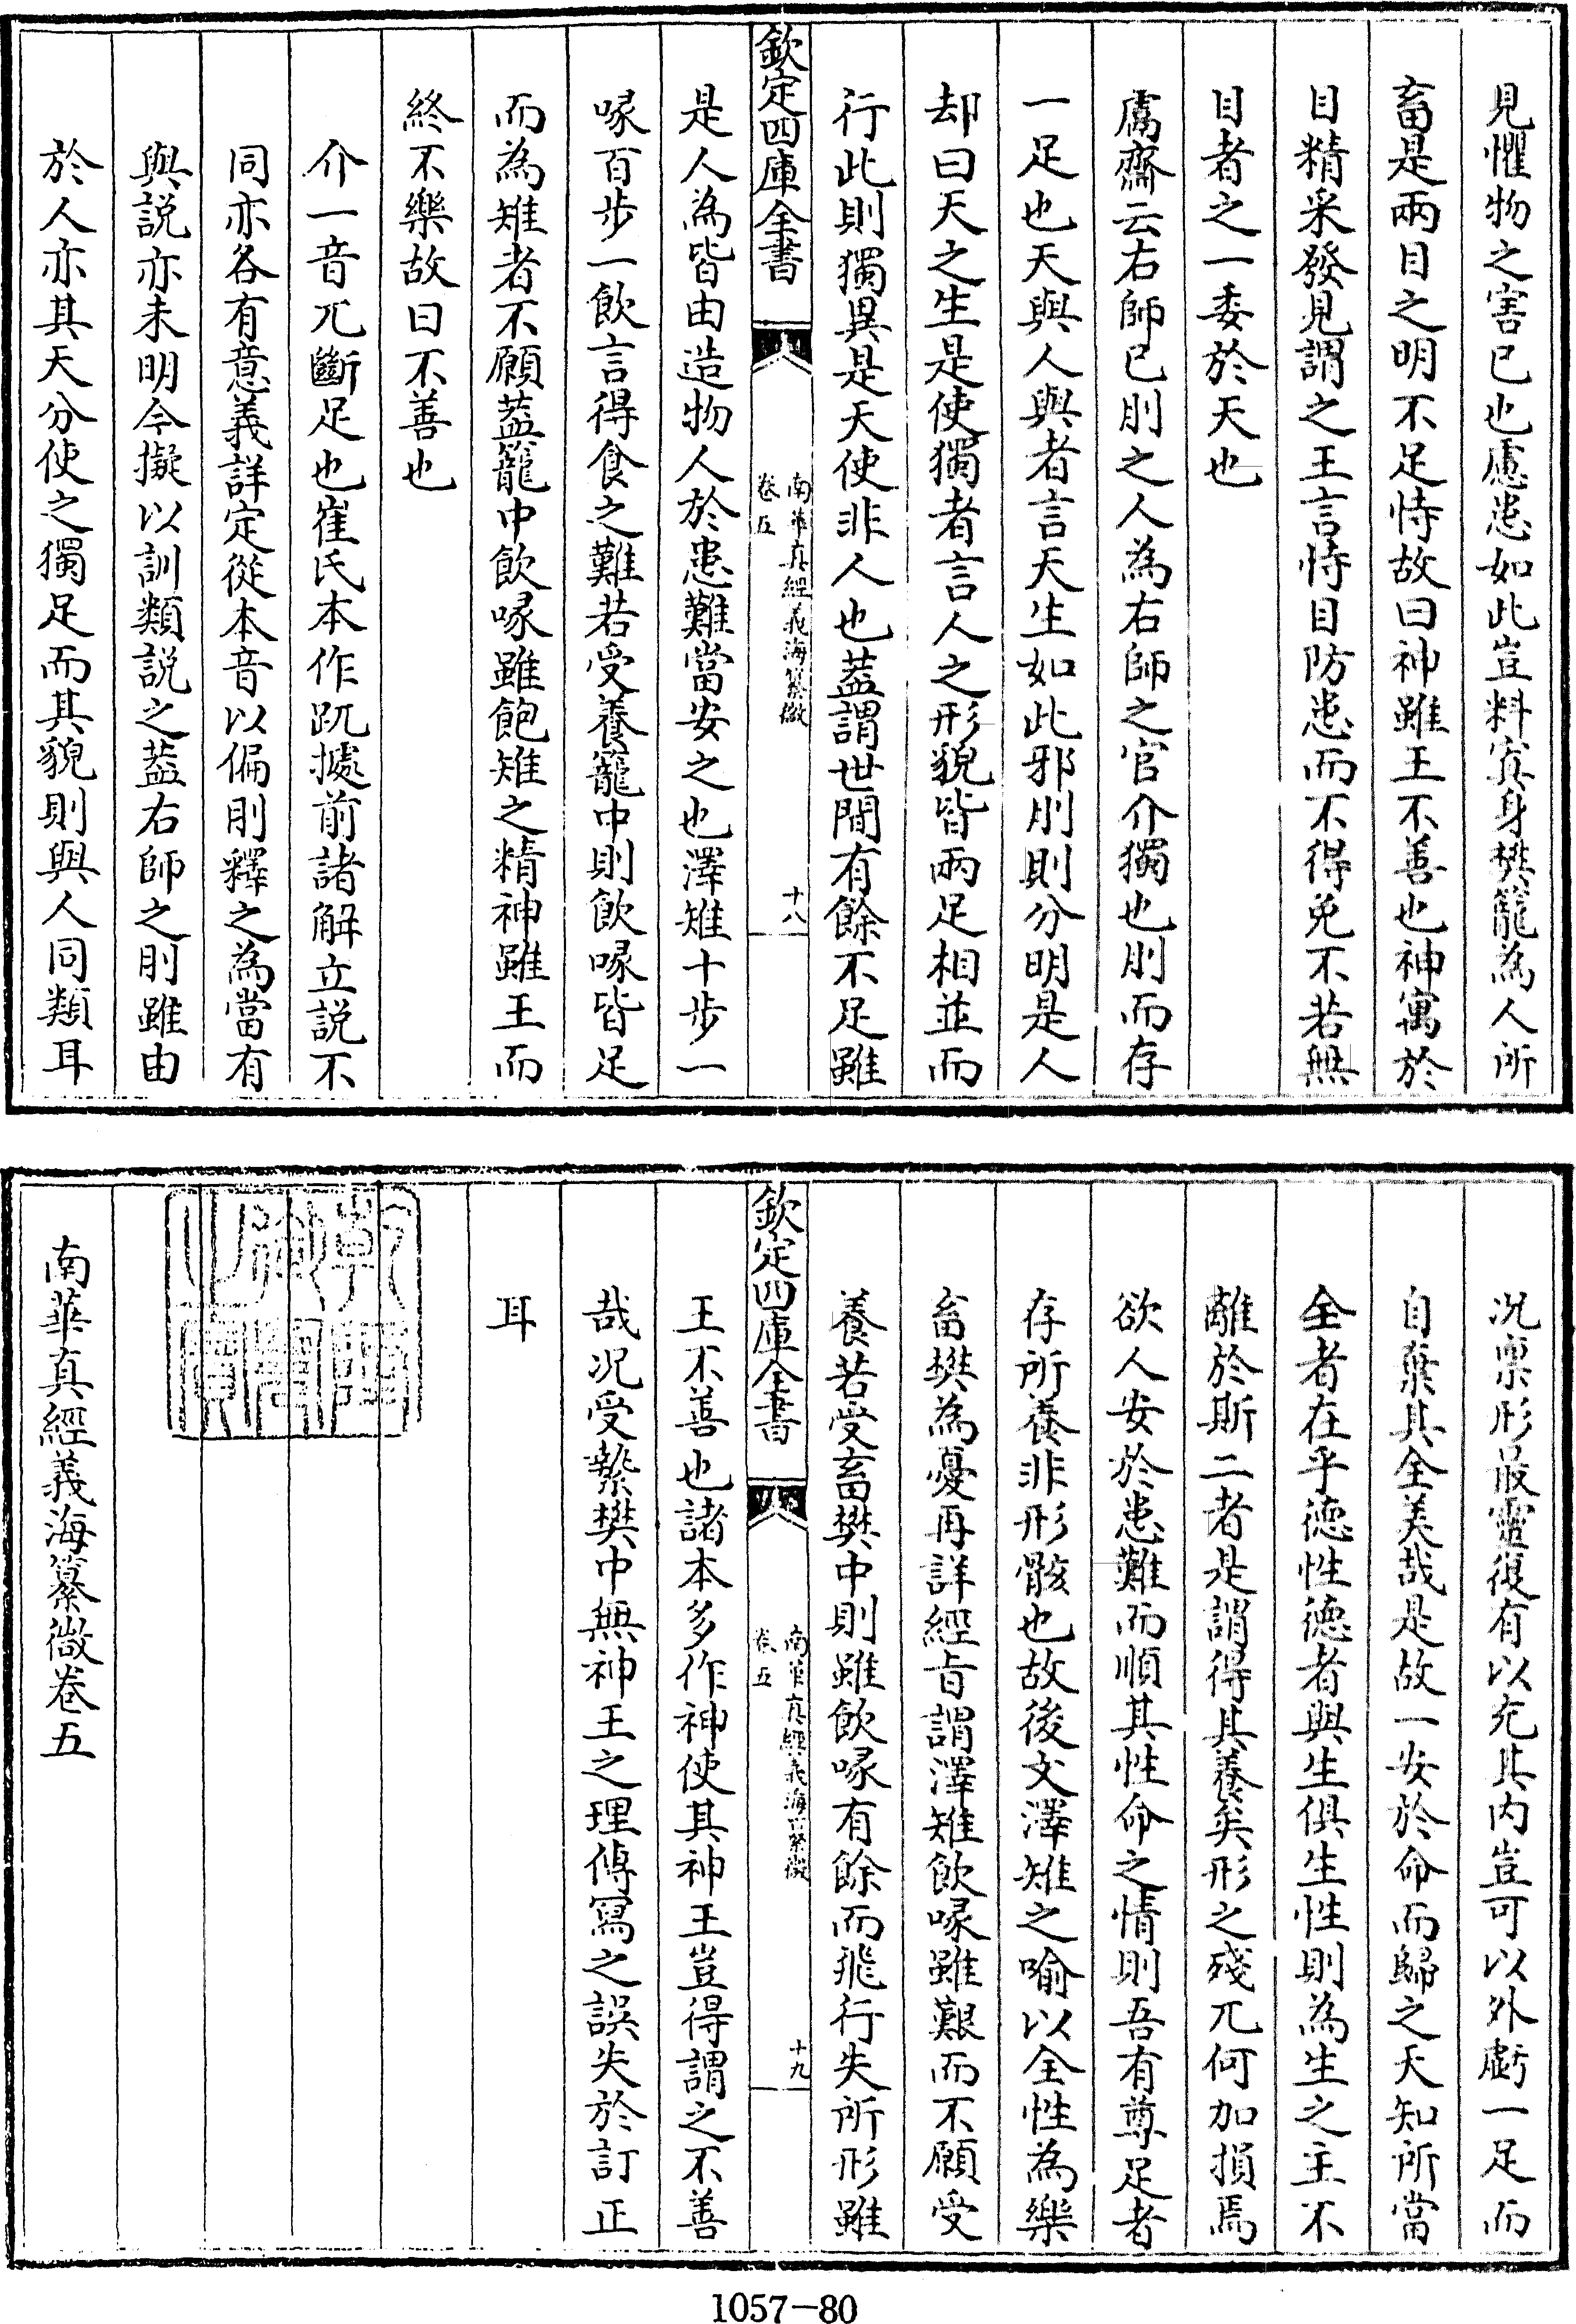 見懼物之害已也慮患如此豈料寘身樊籠為人所
畜是兩目之明不足恃故曰神雖王不善也神寓於
目精采發見謂之王言恃目防患而不得免不若無
目者之一委於天也
鬳齋云右師已刖之人為右師之官介獨也刖而存
一足也天與人與者言天生如此邪刖則分明是人
却曰天之生是使獨者言人之形貌皆兩足相並而
行此則獨異是天使非人也蓋謂世間有餘不足雖
欽定四庫全書
南華真經義海纂微
卷五
十八
是人為皆由造物人於患難當安之也澤雉十步一
啄百步一飲言得食之難若受養籠中則飲啄皆足
而為雉者不願蓋籠中飲啄雖飽雉之精神雖王而
終不樂故曰不善也
介一音兀斷足也崔氏本作趴據前諸解立説不
同亦各有意義詳定從本音以偏刖釋之為當有
與説亦未明今擬以訓類説之蓋右師之刖雖由
於人亦其天分使之獨足而其貌則與人同類耳
况稟形最靈復有以充其内豈可以外虧一足而
自棄其全美哉是故一安於命而歸之天知所當
全者在乎德性德者與生俱生性則為生之主不
離於斯二者是謂得其養矣形之殘兀何加損焉
欲人安於患難而順其性命之情則吾有尊足者
存所養非形骸也故後文澤雉之喻以全性為樂
畜樊為憂再詳經旨謂澤雉飲啄雖艱而不願受
養若受畜樊中則雖飲啄有餘而飛行失所形雖
欽定四庫全書
南華真經義海纂微
卷五
十九
王不善也諸本多作神使其神王豈得謂之不善
哉况受縶樊中無神王之理傳寫之誤失於訂正
耳
乾隆御覽之寶
南華真經義海纂微卷五
1057-80